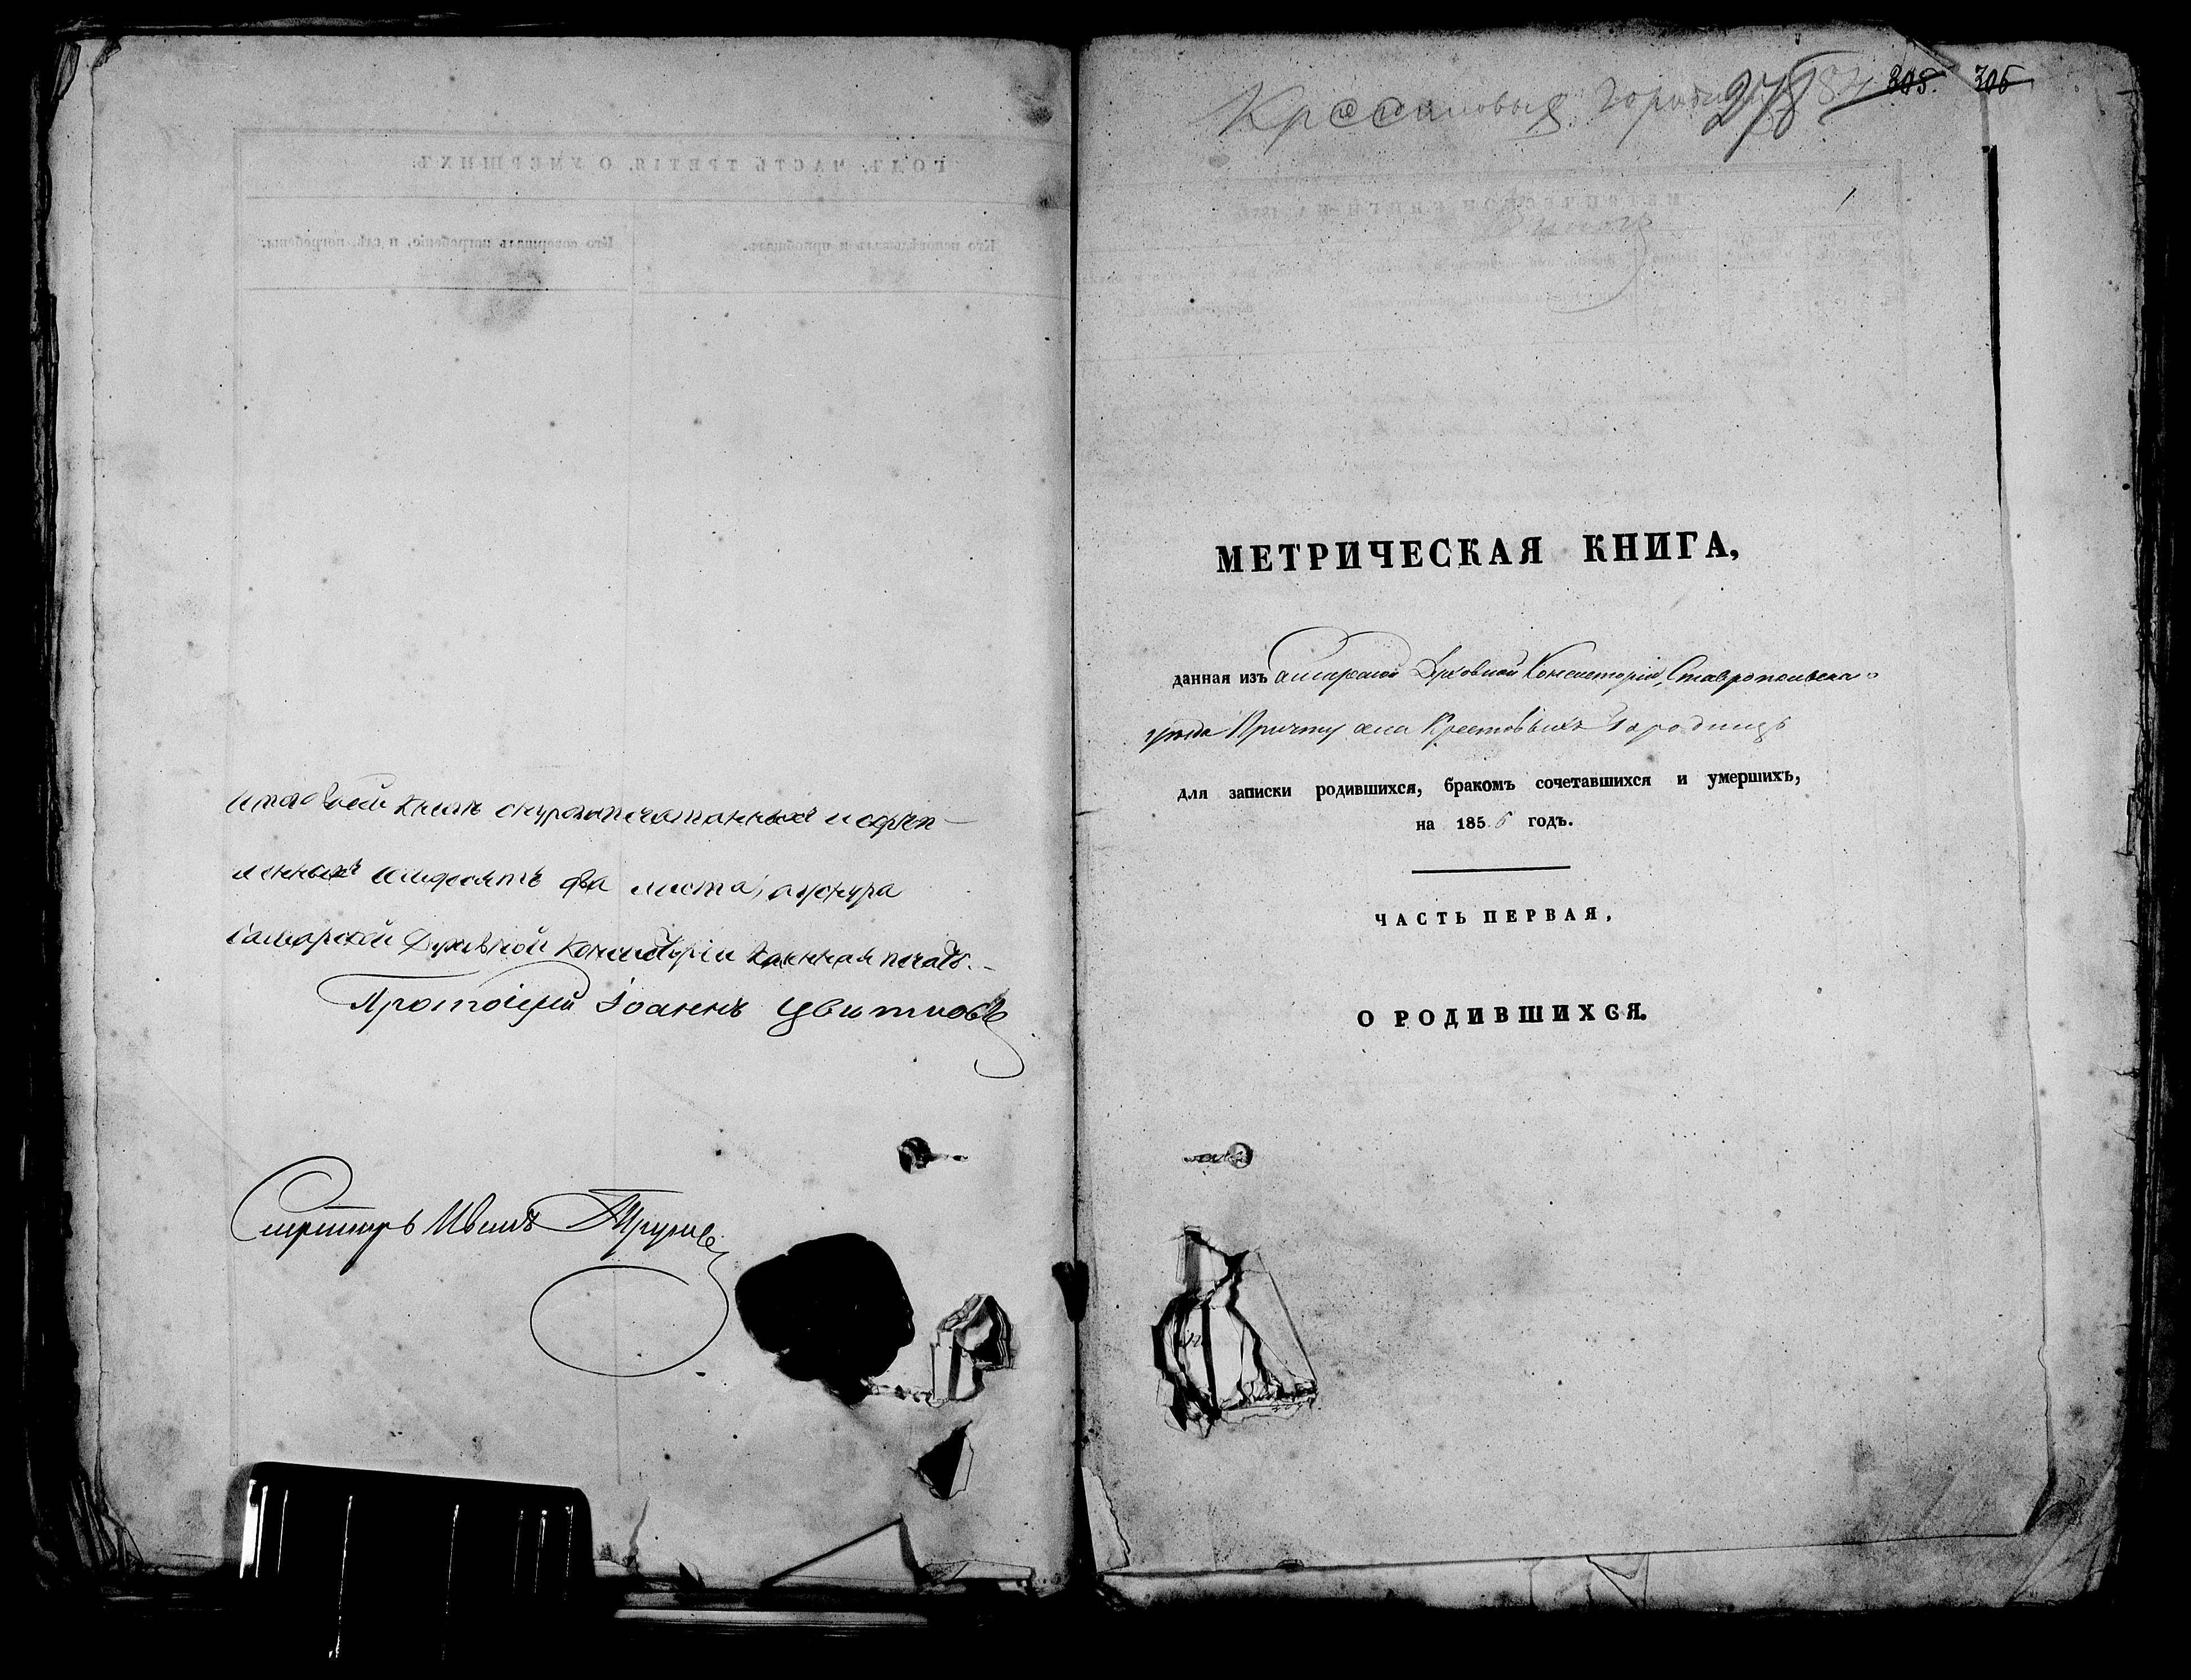 Итого въ сей книгѣ шнурозапечатанныхъ и скрѣп-
ленныхъ два листа, у шнура
Самарской Духовной Консисторіи казенная печать.
Протоіерей Іоаннъ Цвѣтковъ
Секретарь Иванъ
Крестовыя Городищи 278 305. 306
1
МЕТРИЧЕСКАЯ КНИГА,
данная изъ Самарской Духовной Консисторіи, Ставропольскаго
уѣзда Причту села Крестовыхъ Городищъ
для записки родившихся, бракомъ сочетавшихся и умершихъ,
на 1856 годъ.
ЧАСТЬ ПЕРВАЯ,
О РОДИВШИХСЯ.